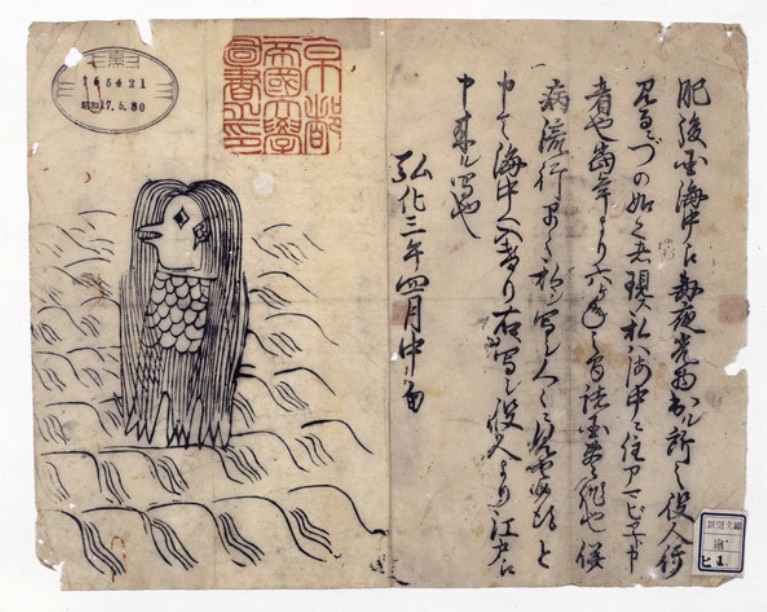 肥後国海中え毎夜光物出ル所之役人行
見るニづの如く者現ス私ハ海中ニ住アマビヱト申
者也当年より六ケ年之間諸国豊作也併
病流行早々私ヲ写シ人々ニ見せ候得と
申て海中へ入けり右写シ役人より江戸え
申来ル写也
弘化三年四月中旬
京都
帝國大學
圖書之印
昭和17.5.30
新聞文庫
ヒ 1